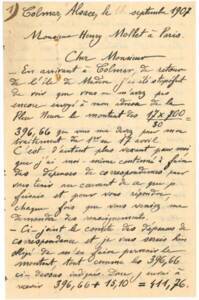 1) Colmar, Alsace, le 11 septembre 1907
Monsieur Henry Mollet à Paris.
Cher Monsieur
— En arrivant à Colmar, de retour
de l'île de , j'ai été stupéfait
de voir que vous n'aviez pas
encore envoyé à mon adresse de la
le montant des 17 x 700 / 30 =
396,66 que vous me devez pour mes
du 1er au 17 avril.
C'est d'autant plus vexant pour moi
que j'ai moi-même continué à faire
des dépenses de correspondance pour
vous tenir au courant de ce que je
faisais et pour vous répondre
chaque fois que vous veniez me
demander des renseignements.
— Ci-joint le compte des dépenses de
correspondance et je vous serais très
obligé de m'en faire parvenir le
montant tout comme les 396,66
ci-dessus indiqués. Donc, j'aurai à
recevoir 396,66 + 15,10 = 411,76.